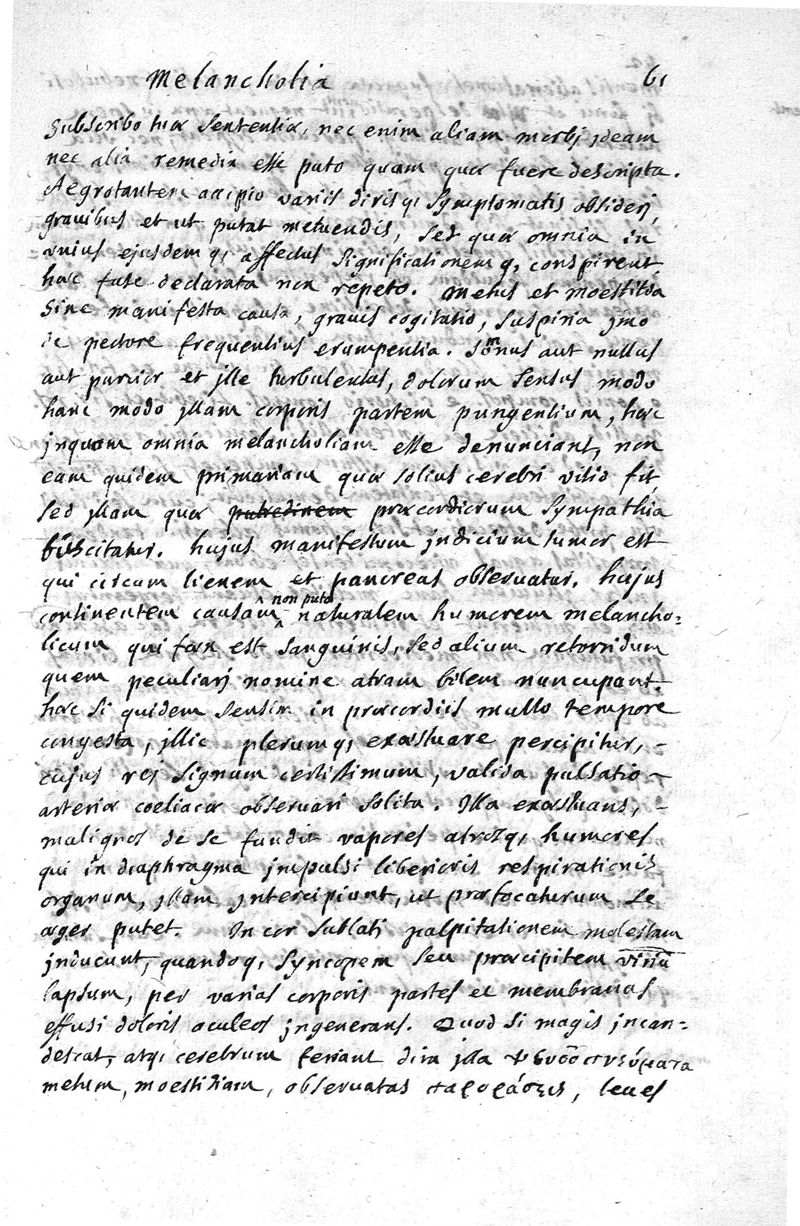 Melancholia 61
Subscribo tuæ sententiæ, nec enim aliam morbj jdeam
nec alia remedia esse puto quam quæ fuere descripta.
Aegrotantem accipio variis dirisq; symptomatis obsiderj,
gravibus et ut putat metuendis, sed quæ omnia in
unius ejusdemq; affectus significationemq; conspirent,
hæc fuse declarata non repeto. Metus et moestitia
sine manifesta causa, gravis cogitatio, suspiria jmo
de pectore frequentius erumpentia. Somnus aut nullus
aut parcior et jlle turbulentus, dolorum sensus modo
hanc modo jllam corporis partem pungentium, hæc
jnquam omnia melancholiam esse denunciant, non
eam quidem primariam quæ solius cerebri vitio fit
sed jllam quæ putredinem præcordiorum sympathia
suscitatur. hujus manifestum jndicium tumor est
qui circum lienem et pancreas observatur. hujus
continentem causam non puto naturalem humorem melancho=
licum qui fæx est sanguinis, sed alium retorridum
quem peculiarj nomine atram bilem nuncupant.
hæc si quidem sensim in præcordiis multo tempore
congesta, jllic plerumq; exæstuare percipitur,
cujus rej signum certissimum, valida pulsatio
arteriæ coeliacæ observari solita. Illa exæstuans,
malignos de se fundit vapores atrosq; humores
qui in diaphragma jmpulsi liberioris respirationis
organum, jllam jntercipiunt, ut præfocaturum se
æger putet. In cor sublati palpitationem molestam
jnducunt, quandoq; syncopem seu præcipitem viriū
lapsum, per varias corporis partes et membranas
effusi doloris aculeos jngenerant. Quod si magis jncan=
descat, atq; cerebrum feriant dira jlla
metum, moestitiam, observatas παροράσεις, leves